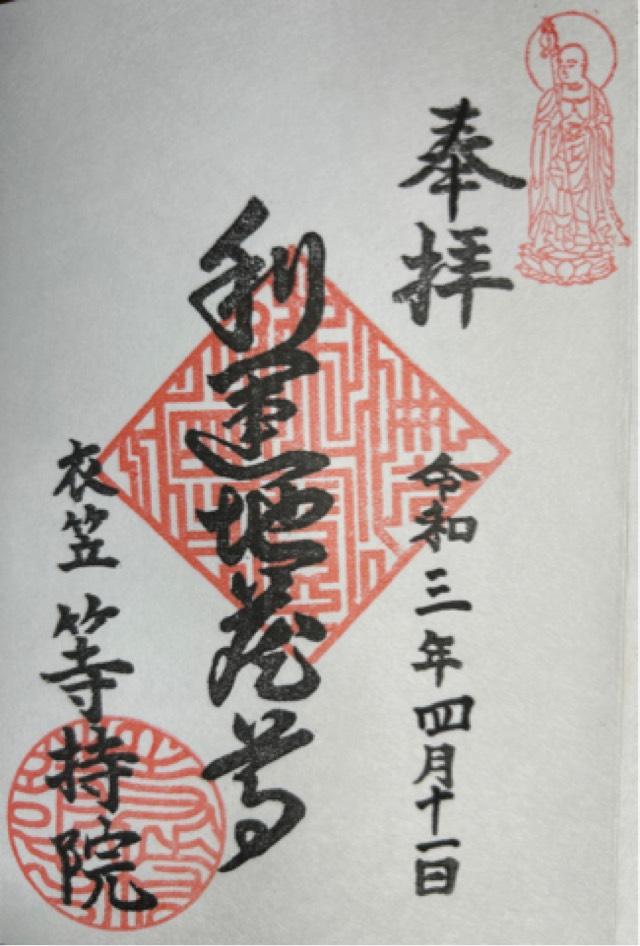 奉拝
令和三年四月十一日
利運地蔵尊
衣笠 等持院